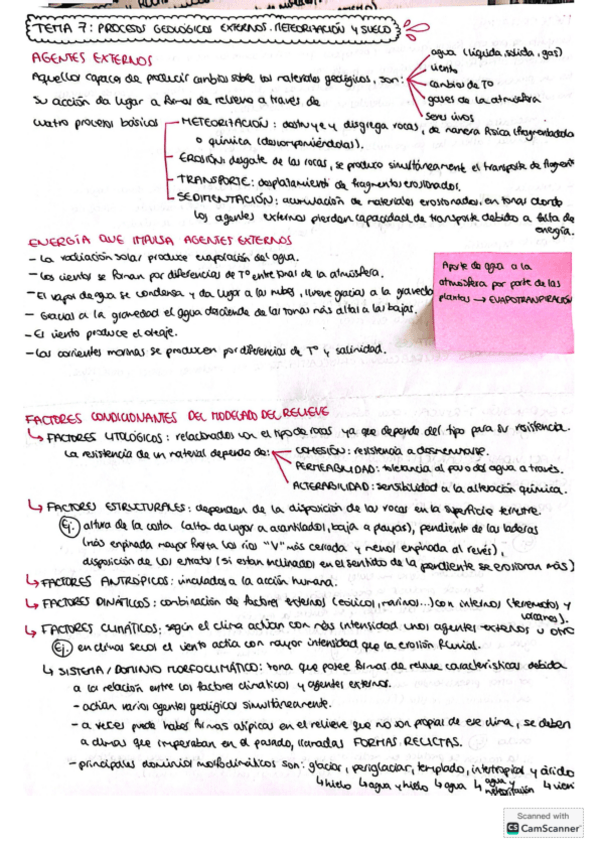 TEMA 7: PROCESOS GEOLÓGICOS EXTERNOS. METEORIZACIÓN Y SUELO
AGENTES EXTERNOS
Aquellos capaces de producir cambios sobre los materiales geológicos, son:
agua (líquida, sólida, gas)
viento
cambios de Tº
gases de la atmósfera
seres vivos
Su acción da lugar a formas de relieve a través de
cuatro procesos básicos
METEORITACIÓN: destruye y disgrega rocas, de manera física (fragmentándola
o química (descomponiéndolas).
- EROSIÓN: desgate de las rocas, se produce simultáneamente el transporte de fragmento
- TRANSPORTE: desplazamiento de fragmentos erosionados.
- SEDIMENTACIÓN: acumulación de materiales erosionados, en zonas donde
los agentes externos pierden capacidad de transporte debido a falta de
energía.
ENERGÍA QUE IMPULSA AGENTES EXTERNOS
- La radiación solar produce evaporación del agua.
- Los vientos se forman por diferencias de Tº entre zonas de la atmósfera.
- El vapor de agua se condensa y da lugar a las nubes, llueve gracias a la gravedad
- Gracias a la gravedad el agua desciende de las zonas más altas a las bajas.
- El viento produce el oleaje.
- Las corrientes marinas se producen por diferencias de Tº y salinidad.
Aporte de agua a la
atmósfera por parte de las
plantas → EVAPOTRANSPIRACIÓN
FACTORES CONDICIONANTES DEL MODELADO DEL RELIEVE
↳ FACTORES LITOLÓGICOS: relacionados con el tipo de rocas ya que depende del tipo para su resistencia.
La resistencia de un material depende de:
COHESIÓN: resistencia a desmenuzarse.
PERMEABILIDAD: tolerancia al paso del agua a través.
ALTERABILIDAD: sensibilidad a la alteración química.
↳ FACTORES ESTRUCTURALES: dependen de la disposición de las rocas en la superficie terrestre.
Ej. altura de la costa (alta da lugar a acantilados, baja a playas), pendiente de las laderas
(más empinada mayor los ríos "V" más cerrada y menos empinada al revés),
disposición de los estratos (si están inclinados en el sentido de la pendiente se erosionan más)
↳ FACTORES ANTRÓPICOS: vinculados a la acción humana.
↳ FACTORES DINÁTICOS: combinación de factores externos (eólicos, marinos...) con internos (terremotos y
volcanes).
↳ FACTORES CLIMÁTICOS: según el clima actúan con más intensidad unos agentes externos u otro
Ej. en climas secos el viento actúa con mayor intensidad que la erosión fluvial.
↳ SISTEMA/DOMINIO MORFOCLIMÁTICO: zona que posee formas de relieve características debido
a la relación entre los factores climáticos y agentes externos.
- actúan varios agentes geológicos simultáneamente.
- a veces puede haber formas atípicas en el relieve que no son propias de ese clima, se deben
a climas que imperaban en el pasado, llamadas FORMAS RELICTAS.
- principales dominios morfoclimáticos son: glaciar, periglaciar, templado, intertropical y árido
↳ hielo ↳ agua y hielo ↳ agua ↳ agua y meteorización ↳ vien
Scanned with
CS CamScanner